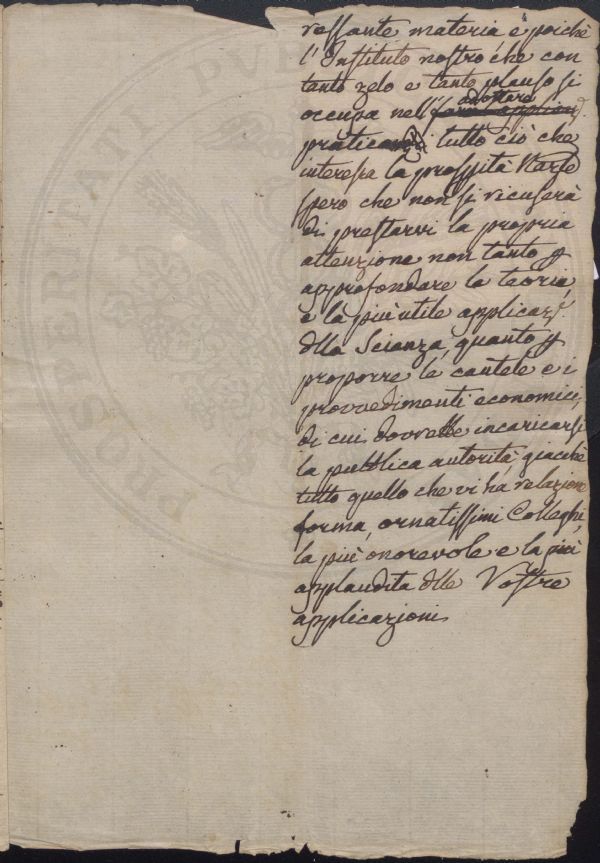 ressante materia e poichè
l'Instituto nostro che con
tanto zelo e tanto plauso si
occupa nell' adottare
praticam di tutto ciò che
interessa la prosp̃ità Naz.e
spero che non si ricuserà
di prestarvi la propria
attenzione non tanto ꝑ
approfondare la teoria,
e la più utile applicaz.
dlla Scienza, quanto ꝑ
proporre le cautele e i
provvedimenti economici,
di cui dovrebbe incaricarsi
la pubblica autorità, giacchè
tutto quello che vi ha relazione
forma, ornatissimi Colleghi,
la più onorevole e la più
applaudita dlle Vostre
applicazioni